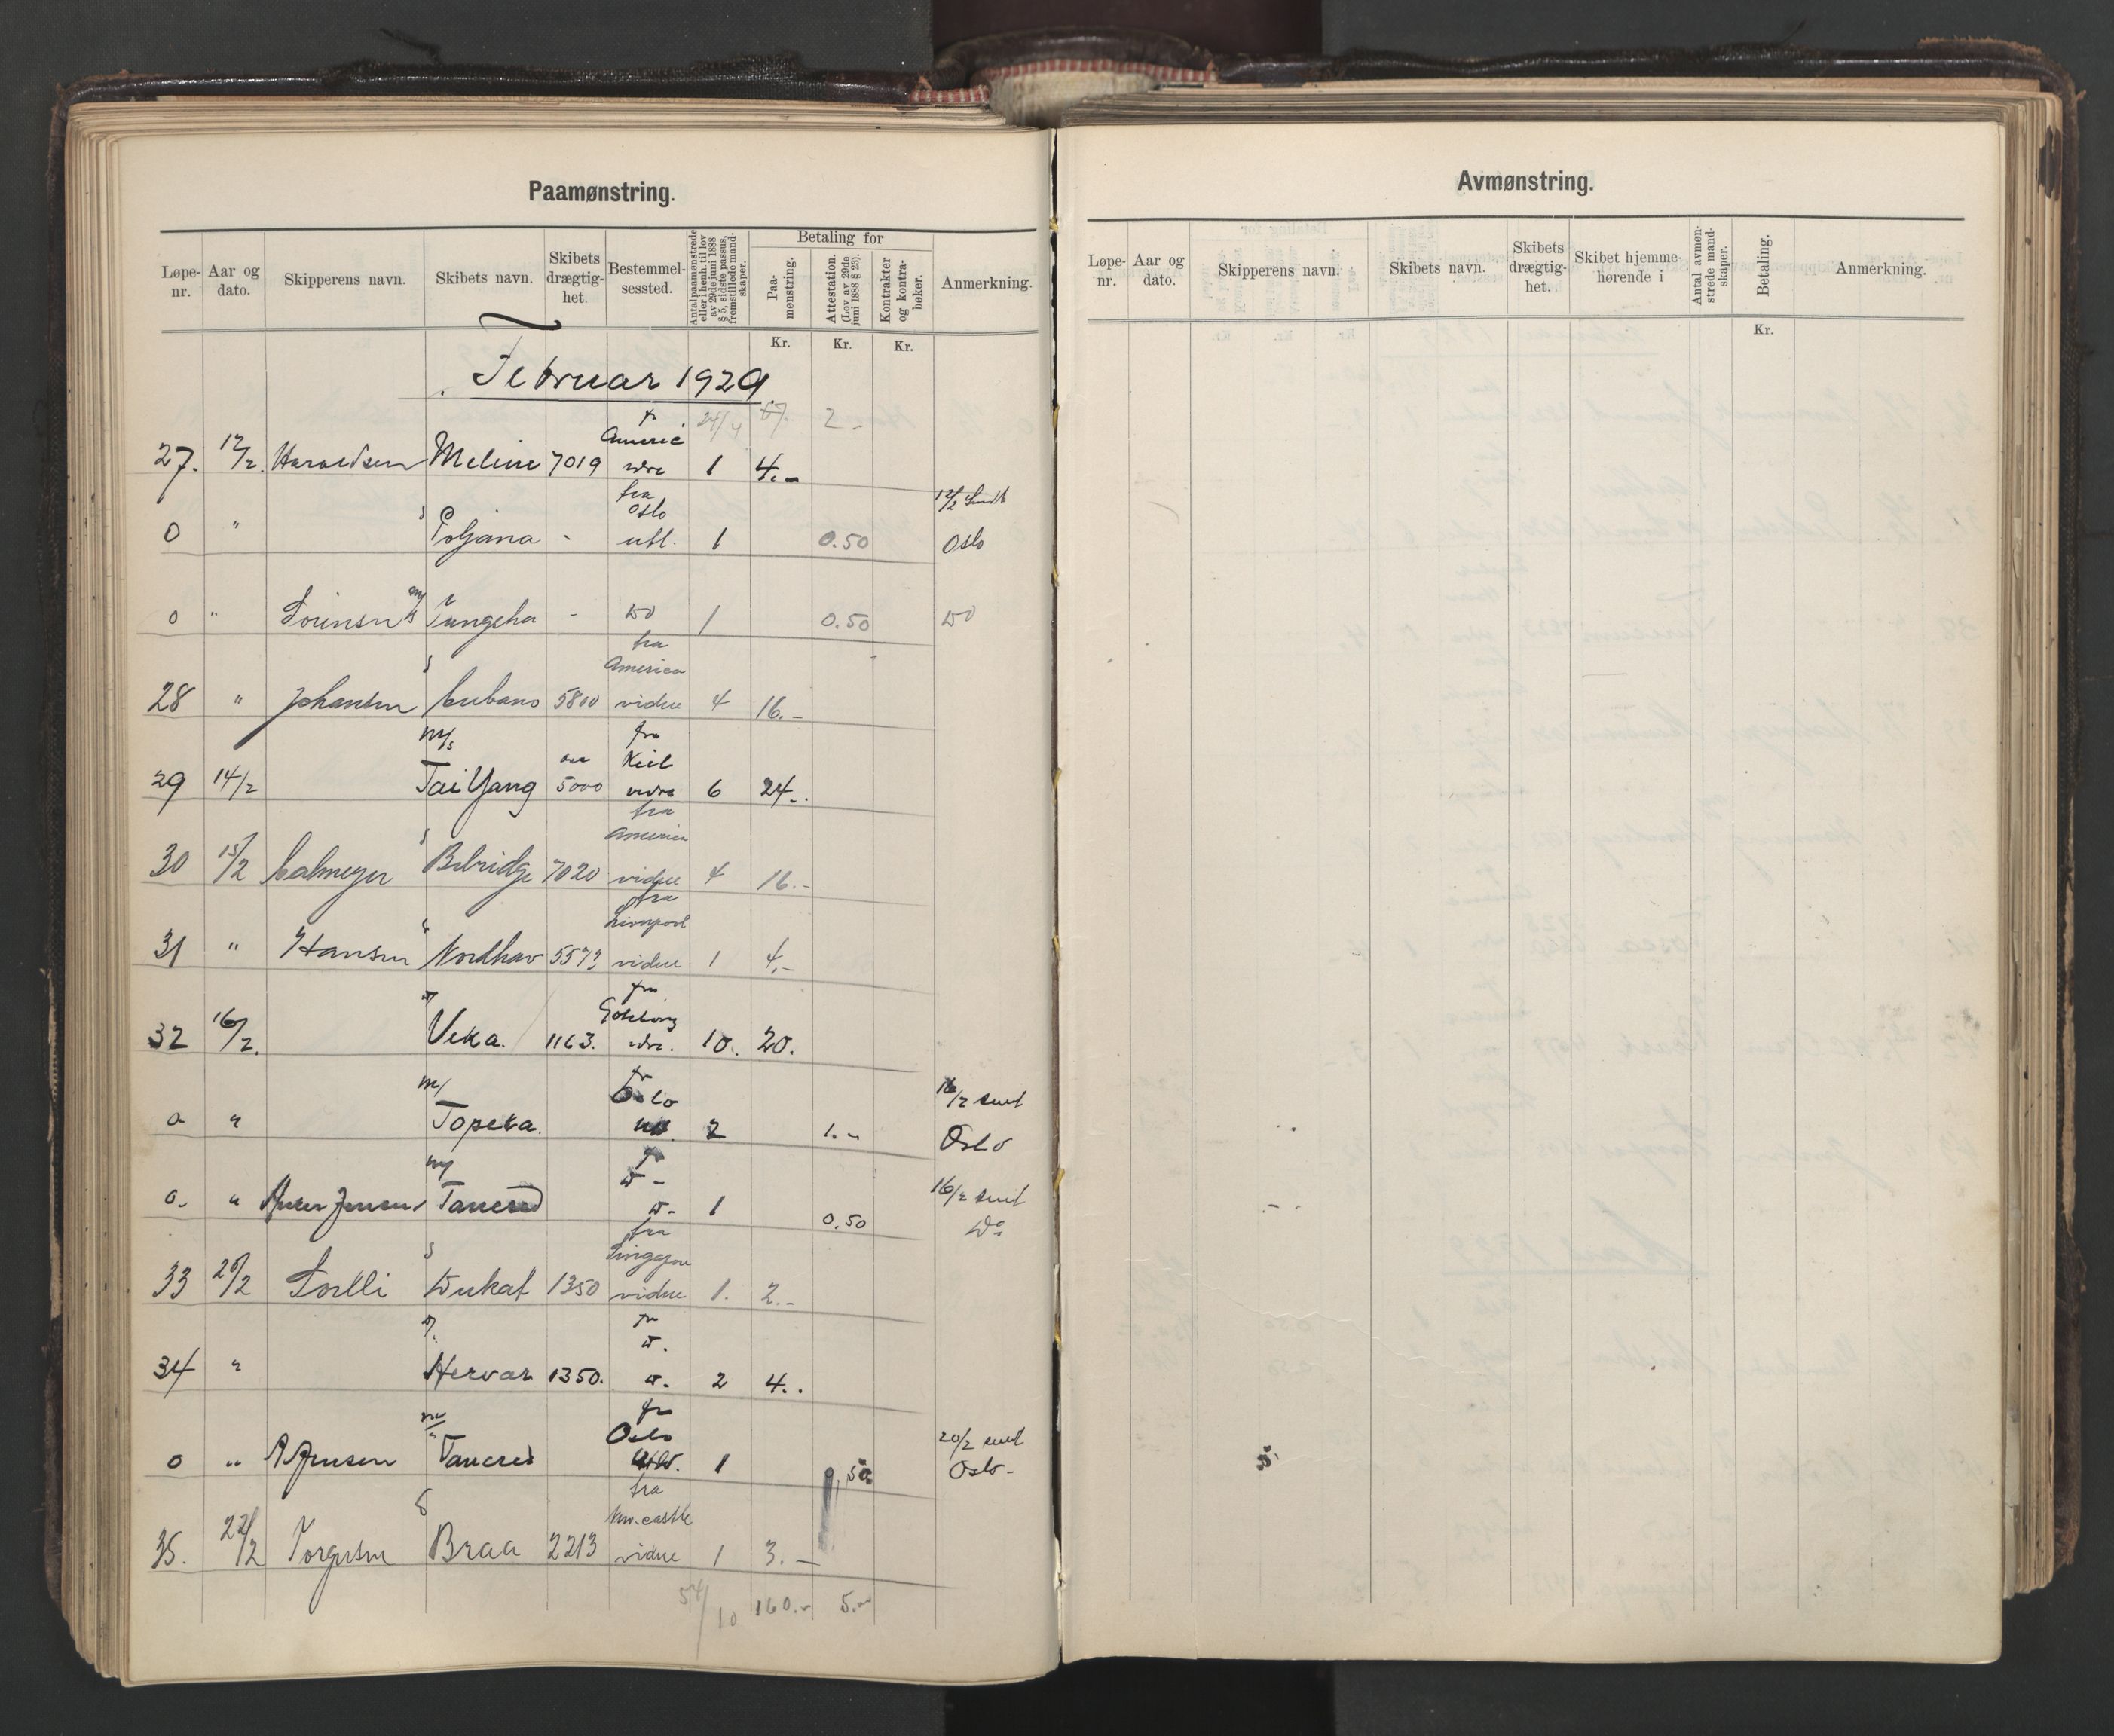 Paamønstring.
Løpe-nr. Aar og dato. Skipperens navn. Skibets navn. Skibets drægtig-het. Bestemmel-sessted. Antal paamønstrede eller i henh. til lov av 29de juni 1888 § 5, sidste passus, fremstillede mand-skaper. Betaling for Paa-mønstring. Attestation. (Lov av 29de juni 1888 § 25). Kontrakter og kontra-bøker. Anmerkning.
Kr. Kr. Kr.
Februar 1929.
24/4 67. 2.-
27. 12/2. Haraldsen Meline 7019 fr Americ vdre 1 4.-
0 " s Poljana - fra Oslo utl. 1 0.50 12/2 Sendt Oslo
0 " Sörensen m/s Tungsha - do 1 0.50 do
28 " Johansen s Cubano 5800 fra America vidre 4 16.-
29 14/2 m/s Tai Yang 5000 fra Kiel vidre 6 24.-
30 15/2 Calmeyer s Belridge 7020 fra America vidre 4 16.-
31 " Hansen s Nordhav 5573 fra Liverpool vidre 1 4.-
32 16/2. Veka. 1163. fra Göteborg vdre. 10. 20.
0 " m/ Topeka. fr Oslo 2 1.- 16/2 sent Oslo
0. " Jensen m/ Tancred 1 0.50 16/2 sent do
33 20/2 s Dukat 1350 fra Singapore vidre 1. 2.-
34 " Hervar 1350. fr 2 4..
0 " A Jensen m/s Tancred fr Oslo 1 0,50 20/2 sent Oslo-
35. 22/2 Torgersen s Braa 2213 fra Newcastle vidre 1 3.-
54/10 160.- 5.-
Avmønstring.
Løpe-nr. Aar og dato. Skipperens navn. Skibets navn. Skibets drægtig-het. Skibet hjemme-hørende i Antal avmøn-strede mand-skaper. Betaling. Anmerkning.
Kr.